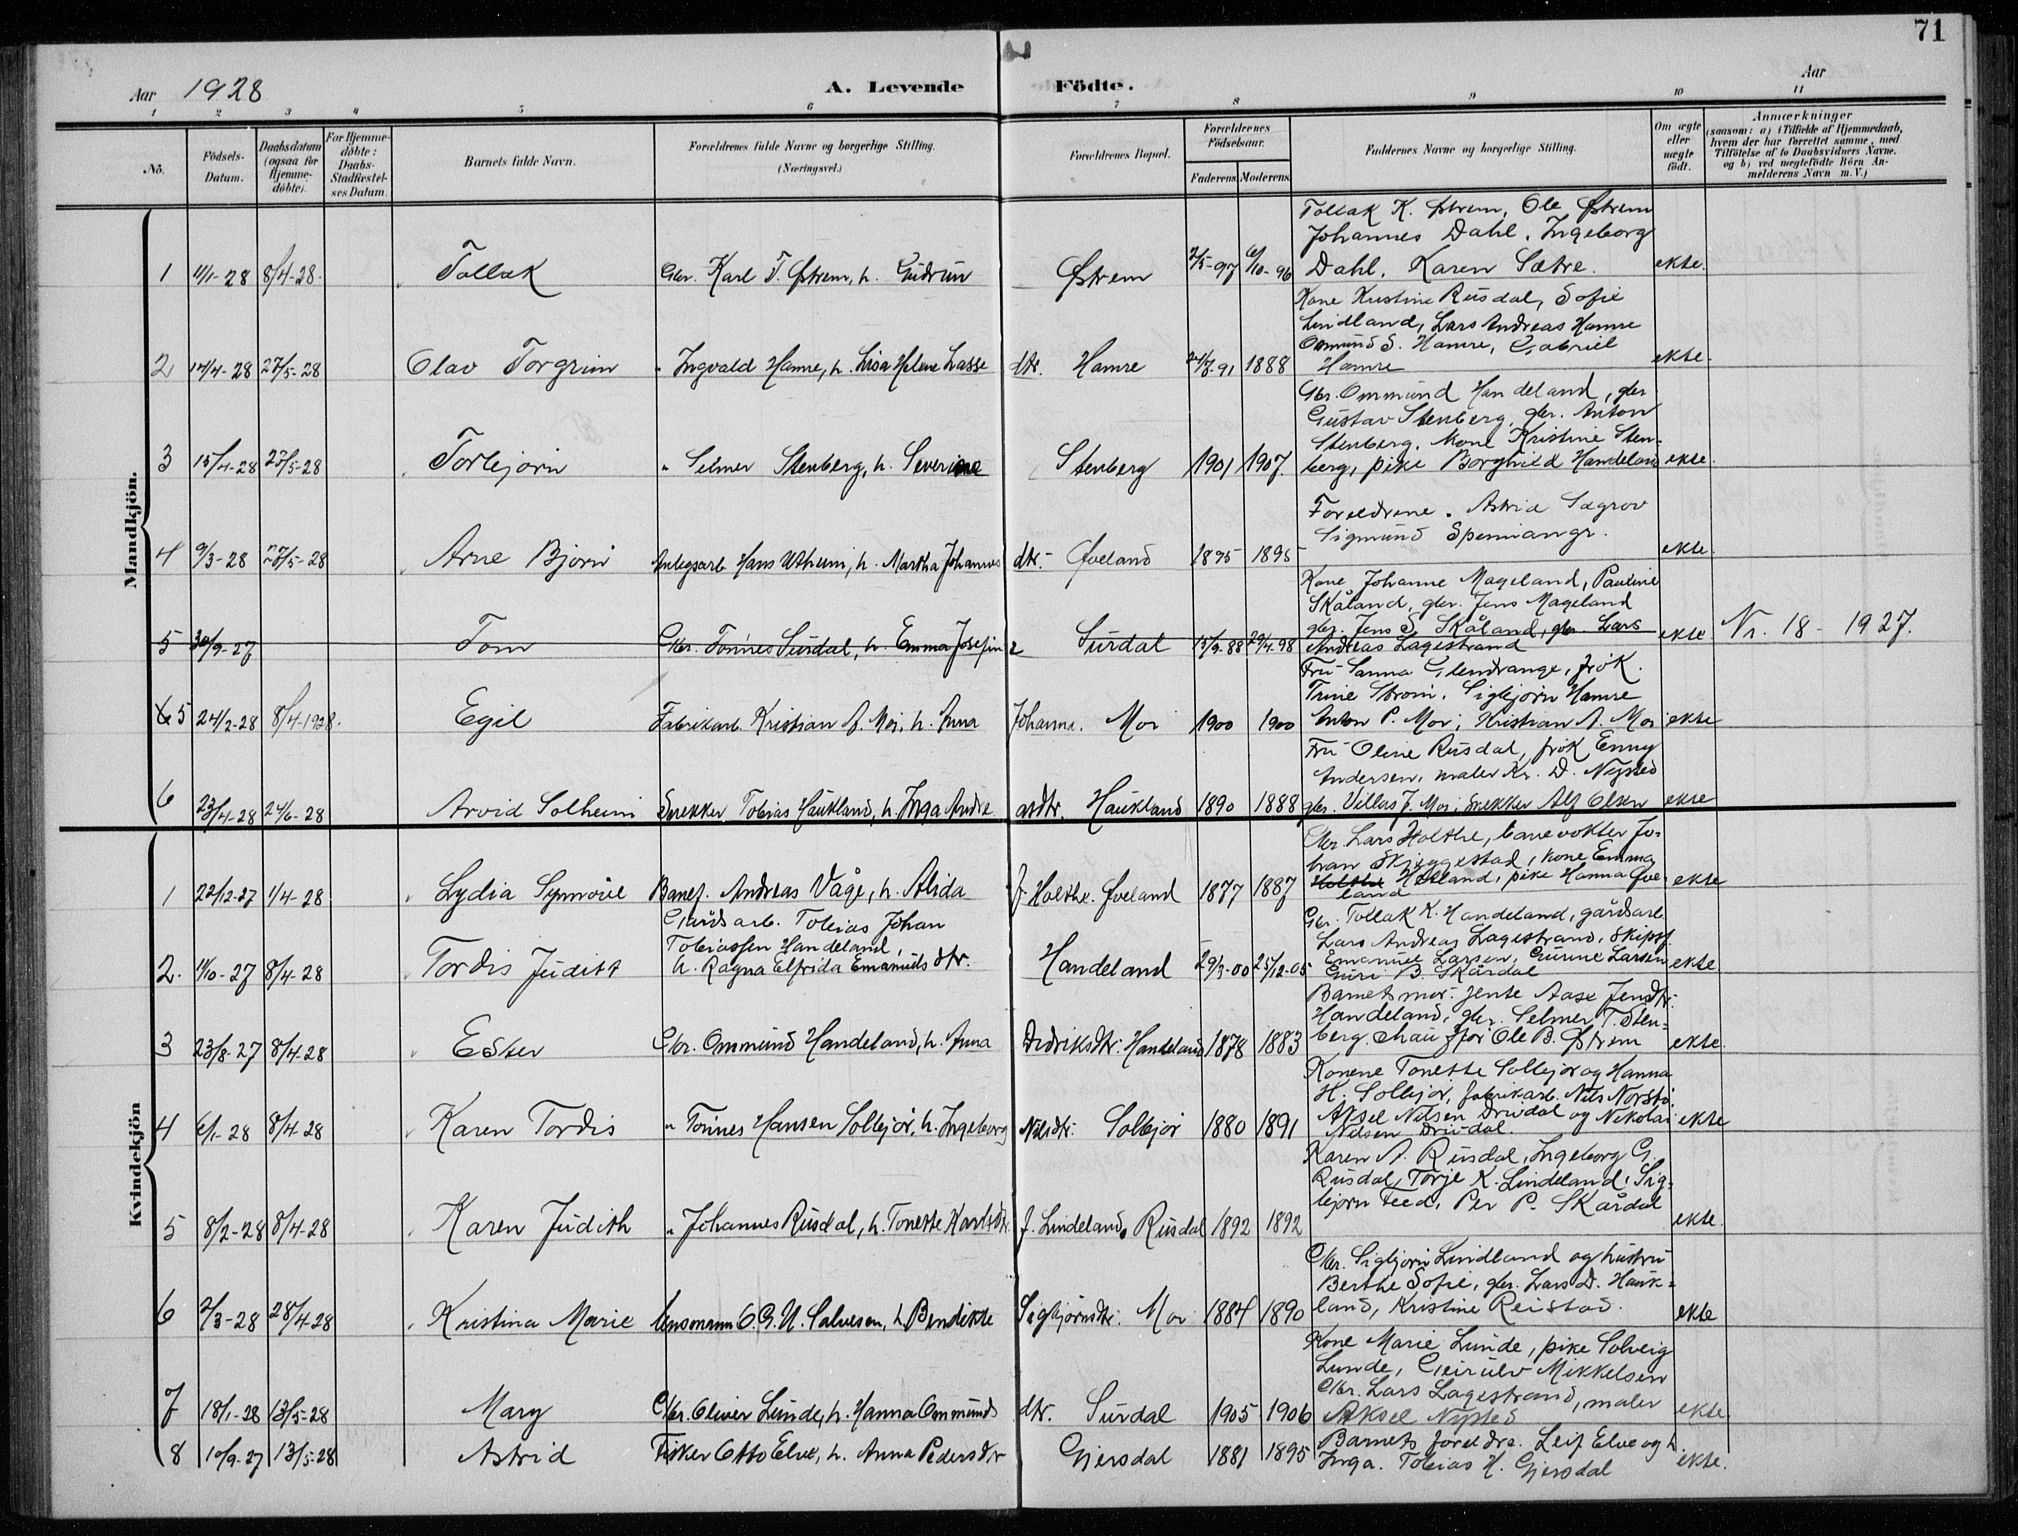 71
Aar 1928
A. Levende Födte.
Aar
1 2 3 4 5 6 7 8 9 10 11
No.
Födsels-Datum.
Daabsdatum (ogsaa for Hjemme-döbte).
For Hjemme-döbte: Daabs-Stadfæstel-ses Datum.
Barnets fulde Navn.
Forældrenes fulde Navne og borgerlige Stilling. (Næringsvei.)
Forældrenes Bopæl.
Forældrenes Födselsaar.
Faderens. Moderens.
Faddernes Navne og borgerlige Stilling.
Om ægte eller uægte födt.
Anmærkninger
(saasom: a) i Tilfælde af Hjemmedaab,
hvem der har forrettet samme, med
Tilföielse af to Daabsvidners Navne.
og b) ved uægtefödte Börn An-
melderens Navn m. V.)
Mandkjön.
1 11/1-28 8/4-28. Tollak Gbr. Karl T. Østrem, h. Gudrun Østrem 2/5-97 6/10-96
Tollak K. Østrem, Ole Østrem
Johannes Dahl, Ingeborg
Dahl, Karen Sætre. ekte.
2 14/4-28 27/5-28 Olav Torgrim " Ingvald Hamre, h. Lisa Helene Lasse dtr. Hamre 24/8-91 1888
Kone Kristine Rusdal, Sofie
Lindland, Lars Andreas Hamre
Ommund S. Hamre, Gabriel
Hamre ekte.
3 15/4-28 27/5-28 Torbjørn " Selmer Stenberg, h. Severine Stenberg 1901 1907.
Gbr. Ommund Handeland, gbr
Gustav Stenberg, gbr. Anton
Stenberg, Kone Kristine Sten-
berg, pike Borghild Handeland ekte.
4 9/3-28 28/5-28 Arne Bjørn Anlegsarb Hans Utheim, h. Martha Johannes dtr. Øveland 1895 1895
Foreldrene. Astrid Sægrov
Sigmund Spenningr. ekte.
5 30/9-27 Tom Gbr. Tønnes Surdal, h. Emma Josefine Surdal 15/9-88 29/4-98
Kone Johanne Mageland, Pauline
Skåland, gbr. Jens Mageland
gbr. Jens S. Skåland, gbr. Lars
Andreas Lagestrand ekte Nr. 18 - 1927.
6 5 24/2-28 8/4-1928. Egil Fabrikarb. Kristian A. Moi, h. Anna Johanna. Moi 1900 1900
Fru Sanna Glendrange, frøk.
Trine Strøm, Sigbjørn Hamre
Anton P. Moi, Kristian A. Moi ekte
6 23/4-28 24/6-28 Arvid Solheim Snekker Tobias Haukland, h. Inga Andre asdtr. Haukland 1890 1888
Fru Olene Rusdal, frøk Enny
Andersen, maler Kr. D. Nysted
gbr. Villas J. Moi, Snekker Alf Olsen ekte
Kvindekjön
1 22/12-27 1/4-28 Lydia Synnøve Banef. Andreas Våge, h. Alida f. Holthe. Øveland 1877 1887
Gbr. Lars Holthe, banevokter Jo-
han Skjeggestad, kone Emma
Holthe Helland, pike Hanna Øve-
land ekte
2. 11/10-27 8/4-28 Tordis Judith Gårdsarb. Tobias Johan
Tobiassen Handeland,
h. Ragna Elfrida Emanuels dtr. Handeland 29/3-00 25/12-05
Gbr. Tollak K. Handeland, gårdsarb.
Lars Andreas Lagestrand, Skipsf.
Emanuel Larsen, Gurine Larsen
Guri B. Skårdal ekte
3 23/8-27 8/4-28 Ester Gbr. Ommund Handeland, h. Anna Didriksdtr. Handeland 1878 1883
Barnets mor. Jente Aase Jensdtr.
Handeland, gbr. Selmer T. Sten-
berg. Chauffør Ole B. Østrem ekte.
4 6/1-28 8/4-28 Karen Tordis " Tønnes Hansen Solbjør, h. Ingeborg Nilsdtr. Solbjør 1880 1891
Konene Tonette Solbjør og Hanna
H. Solbjør, fabrikarb. Nils Norstø
Aksel Nilsen Drivdal og Nikolai
Nilsen Drivdal. ekte
5 8/2-28 8/4-28 Karen Judith " Johannes Rusdal, h. Tonette Karlsdtr. f. Lindeland. Rusdal 1892 1892
Karen A. Rusdal, Ingeborg G.
Rusdal, Torje K. Lindeland, Sig-
bjørn Feed, Per P. Skårdal ekte.
6 2/3-28 28/4-28 Kristina Marie Lensmann O. G. U. Salvesen, h. Bendikte Sigbjørnsdtr. Moi 1884 1890
Gbr. Sigbjørn Lindland og hustru
Berthe Sofie, gbr. Lars D. Hauk-
land, Kristine Reistad. ekte
7 18/1-28 13/5-28 Mary Gbr. Oliver Lunde, h. Hanna Ommunds dtr. Surdal 1905 1906
Kone Marie Lunde, pike Solveig
Lunde, Geirulv Mikkelsen
Gbr. Lars Lagestrand, maler
Aksel Nysted ekte.
8 10/9-27 13/5-28 Astrid Fisker Otto Elve, h. Anna Pedersdtr Gjersdal 1881 1895
Barnets foreldre. Leif Elve og h.
Inga. Tobias H. Gjersdal ekte.